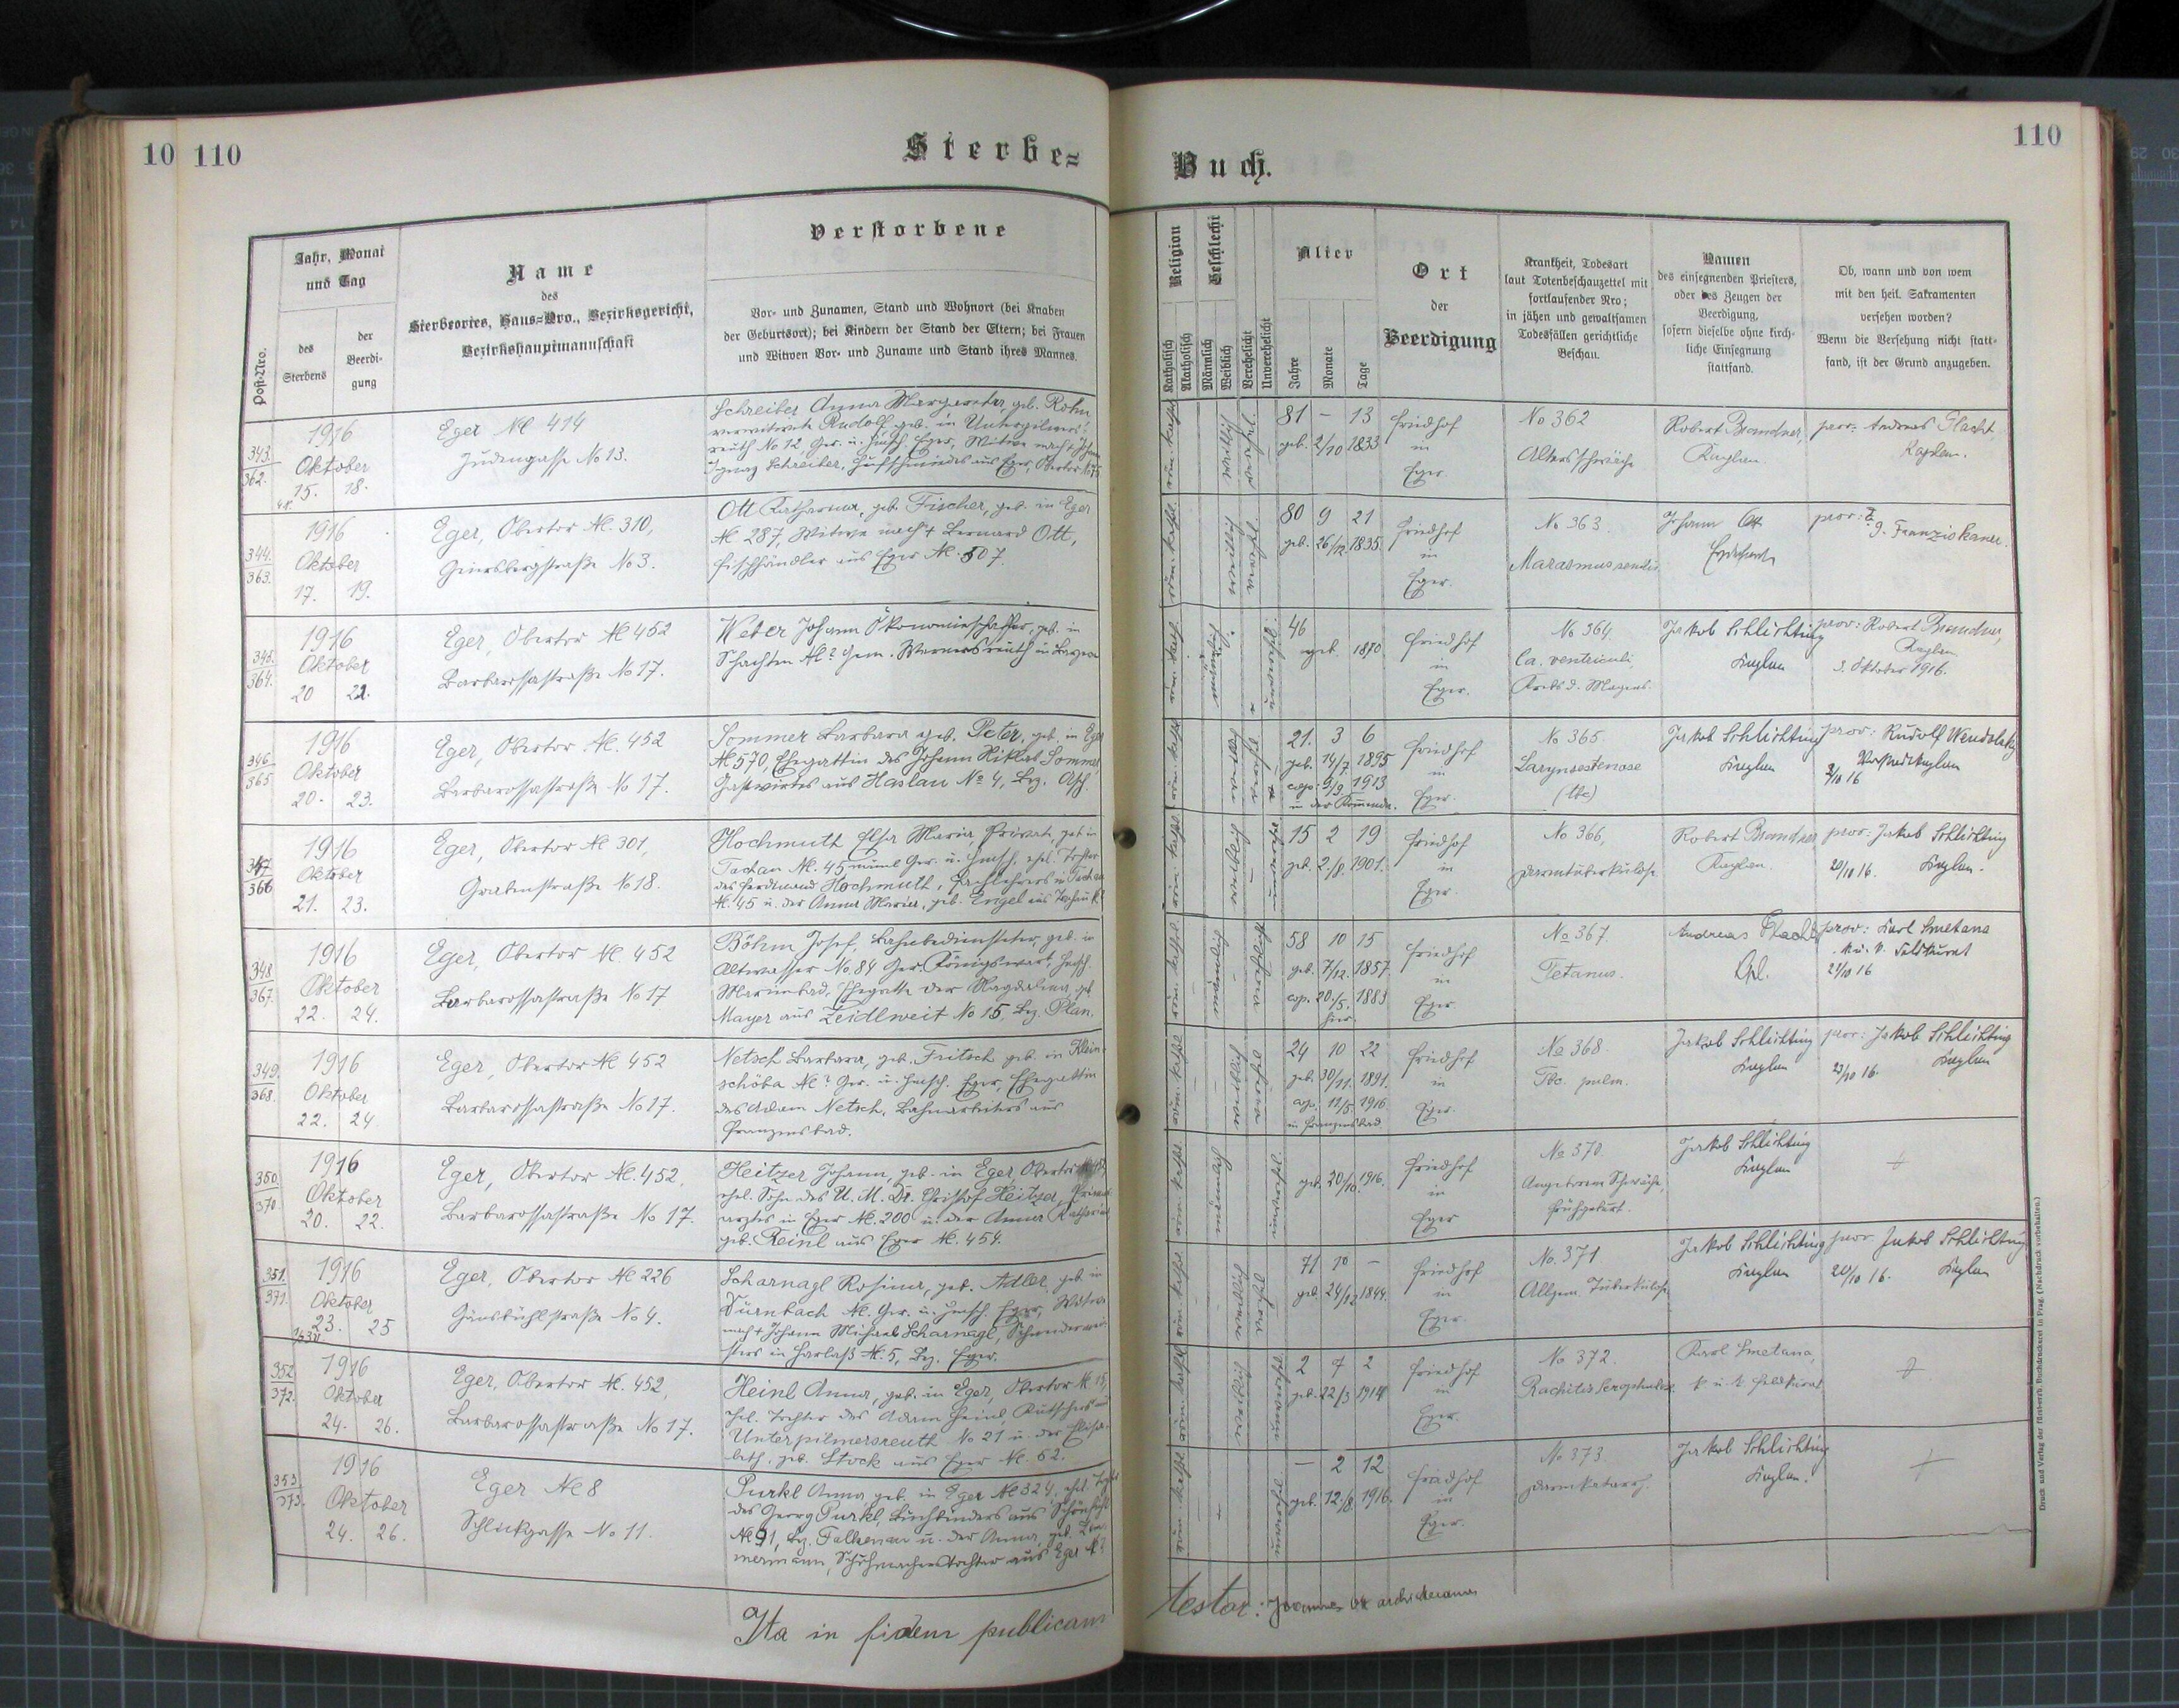 10 110
Sterbe=
Buch.
110
Post-Nro.
Jahr, Monat
und Tag
des
Sterbens
der
Beerdi-
gung
Name
des
Sterbeortes, Haus=Nro., Bezirksgericht,
Bezirkshauptmannschaft
Verstorbene
Vor- und Zunamen, Stand und Wohnort (bei Knaben
der Geburtsort); bei Kindern der Stand der Eltern; bei Frauen
und Witwen Vor- und Zuname und Stand ihres Mannes.
Religion
Katholisch
Akatholisch
Geschlecht
Männlich
Weiblich
Verehelicht
Unverehelicht
Alter
Jahre
Monate
Tage
Ort
der
Beerdigung
Krankheit, Todesart
laut Totenbeschauzettel mit
fortlaufender Nro;
in jähen und gewaltsamen
Todesfällen gerichtliche
Beschau.
Namen
des einsegnenden Priesters,
oder des Zeugen der
Beerdigung,
sofern dieselbe ohne kirch-
liche Einsegnung
stattfand.
Ob, wann und von wem
mit den heil. Sakramenten
versehen worden?
Wenn die Versehung nicht statt-
fand, ist der Grund anzugeben.
343.
362.
1916
Oktober
15. 18.
Eger № 414
Judengasse No 13.
Schreiber Anna Margaretha, geb. Rohm
verwitwete Rudolf, geb. in Unterpilmers-
reuth No 12 Ger. u. Hmsch. Eger, Witwe nach + Johann
Ignaz Schreiber, Hufschmiedes aus Eger, Obertor
81 – 13
geb. 2/10 1833
Friedhof
in
Eger.
No 362
Altersschwäche
Robert Brandner,
Kaplan.
prov: Andreas Placht,
Kaplan.
344.
363.
1916
Oktober
17. 19.
Eger, Obertor №. 310,
No 3.
Ott Katharina, geb. Fischer, geb. in Eger
№ 287, Witwe nach + Bernard Ott,
Fischhändler aus Eger №. 507.
80 9 21
geb. 26/12. 1835.
Friedhof
in
Eger.
No 363.
Marasmus senilis
Johann Ott
Erzdechant
prov: P.
Franziskaner.
345.
364.
1916
Oktober
20 22.
Eger, Obertor № 452
Barbarossastraße No 17.
Weber Johann Ökonomieschaffer, geb. in
Schachten №? Gem. Wernersreuth in Bayern
46
geb. 1870
Friedhof
in
Eger.
No 364.
Ca. ventriculi,
Krebs d. Magens.
Jakob Schlichting
Kaplan
prov: Robert Brandner,
Kaplan
3. Oktober 1916.
346.
365.
1916
Oktober
20. 23.
Eger, Obertor №. 452
Barbarossastraße No 17.
Sommer Barbara geb. Peter, geb. in Eger
№ 570, Ehegattin des Johann Niklas Sommer,
Gastwirtes aus Haslau No 4, Bez. Asch.
21. 3 6
geb. 14/7. 1895
cop: 9/9. 1913
in der Kommende.
Friedhof
in
Eger.
No 365.
Larynxstenose
(tbc)
Jakob Schlichting
Kaplan
prov: Rudolf Wendolsky
2/10 16
347
366
1916
Oktober
21. 23.
Eger, Obertor № 301,
Grabenstraße No 18.
Hochmuth Elsa Maria, Private, geb in
Tachau №. 45 Ger. u. Hmsch. ehel. Tochter
des Ferdinand Hochmuth, Fachlehrers in Tachau
№. 45 u. der Anna Maria, geb. Engel aus Tachau №?
15 2 19
geb. 2./8. 1901.
Friedhof
in
Eger.
No 366,
Darmtuberkulose.
Robert Brandner
Kaplan.
prov: Jakob Schlichting
20/10 16. Kaplan.
348.
367.
1916
Oktober
22. 24.
Eger, Obertor №. 452
Barbarossastraße No 17
Böhm Josef, Bahnbediensteter, geb. in
Altwasser No. 84 Ger. Königswart, Hmsch.
Marienbad, Ehegatte der Magdalena geb
Mayer aus Zeidlweit No 15, Bez. Plan.
58 10 15
geb. 7/12. 1857.
cop. 20./5. 1883
hier.
Friedhof
in
Eger
No 367.
Tetanus.
Andreas Placht
Kpl.
prov: Karl Smetana
k. u. k. Feldkurat
21/10 16
349.
368.
1916
Oktober
22. 24
Eger, Obertor № 452
Barbarossastraße No 17.
Netsch Barbara, geb. Fritsch geb. in Klein-
schöba №? Ger. u. Hmsch. Eger, Ehegattin
des Adam Netsch, Bahnarbeiters aus
Franzensbad.
24 10 22
geb. 30/11. 1891.
cop. 11/5. 1916
in Franzensbad.
Friedhof
in
Eger.
No 368.
Tbc. pulm.
Jakob Schlichting
Kaplan
prov: Jakob Schlichting
23/10 16. Kaplan
350.
370.
1916
Oktober
20. 22.
Eger, Obertor №. 452,
Barbarossastraße No 17.
Heitzer Johann, geb. in Eger, Obertor
ehel. Sohn des U. M. Dr. Christof Heitzer,
arztes in Eger №. 200 u. der Anna Katharina
geb. Reinl aus Eger №. 454.
geb. 20/10. 1916.
Friedhof
in
Eger
No 370.
Angeborene Schwäche,
Frühgeburt.
Jakob Schlichting
Kaplan
+
351.
371.
1916
Oktober
23. 25
Eger, Obertor № 226
Gänsbühlstraße No 4.
Scharnagl Rosina, geb. Adler, geb. in
Dürnbach №. Ger. u. Hmsch. Eger, Witwe
nach + Johann Michael Scharnagl, Schneidermei-
sters in Harlaß №. 5, Bez. Eger.
71 10 –
geb. 24/12 1844.
Friedhof
in
Eger.
No. 371
Allgem. Tuberkulose.
Jakob Schlichting
Kaplan
prov. Jakob Schlichting
20/10 16. Kaplan
352.
372.
1916
Oktober
24. 26.
Eger, Obertor №. 452,
Barbarossastraße No 17.
Heinl Anna, geb. in Eger, Obertor № 15,
ehel. Tochter des Adam Heinl, Kutschers aus
Unterpilmersreuth No 21 u. der Elisa-
beth, geb. Stock aus Eger №. 62.
2 7 2
geb. 22/3 1914
Friedhof
in
Eger.
No 372.
Karl Smetana,
k. u. k. Feldkurat
+
353.
373.
1916
Oktober
24. 26.
Eger № 8
Schlickgasse No 11.
Purkl Anna, geb. in Eger № 324, ehel. Tochter
des Georg Purkl, Buchbinders aus Schönficht
№ 91, Bez. Falkenau u. der Anna, geb. Zim-
mermann, Schuhmacherstochter aus Eger №?
– 2 12
geb. 12./8. 1916.
Friedhof
in
Eger.
No 373
Darmkatarrh.
Jakob Schlichting
Kaplan.
+
Ita in fidem publicam
testor: Joannes Ott archidecanus
Druck und Verlag der fürsterzb. Buchdruckerei in Prag. (Nachdruck vorbehalten.)